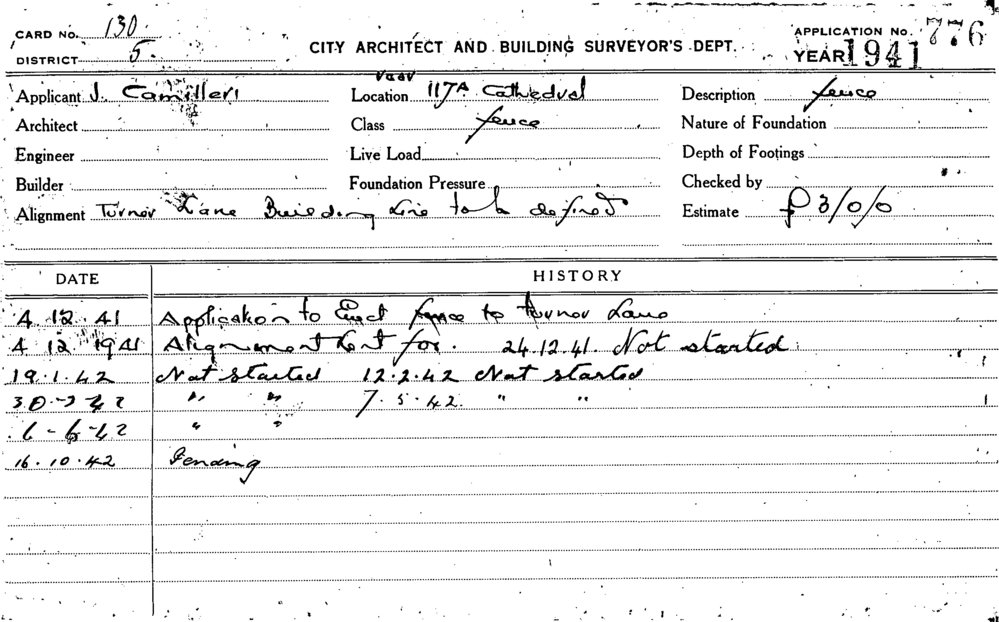 CARD No. 130
APPLICATION No. 776
DISTRICT 5.
CITY ARCHITECT AND BUILDING SURVEYOR'S DEPT.
YEAR 1941
rear
Applicant J. Camilleri Location 117A Cathedral Description fence
Architect Class fence Nature of Foundation
Engineer Live Load Depth of Footings
Builder Foundation Pressure Checked by
Alignment Turner Lane Building Line to be defined Estimate £3/0/0
DATE HISTORY
4 12 41 Application to Erect fence to Turner Lane
4 12 1941 Alignment for. 24.12.41. Not started
19.1.42 Not started 12.2.42 Not started
30-3-42 " " 7.5.42. " "
6-6-42 " "
16.10.42 Pending